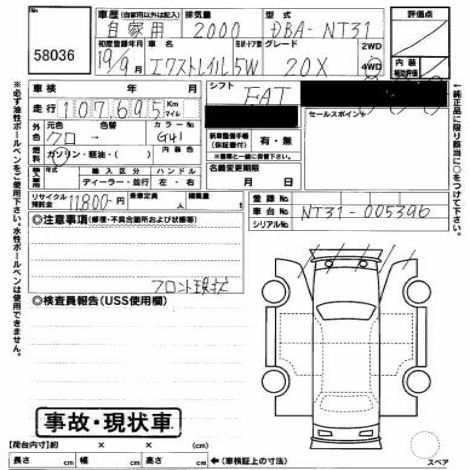 58036
車歴 (自家用以外は記入)
自家用
排気量
2000
型式
DBA-NT31
評価点
初度登録年月
19/9月
車名
エクストレイル
形状・ドア数
5W
グレード
20X
2WD
4WD
内装
補助評価
車検 年 月
走行 107,695 Km マイル
シフト
FAT
セールスポイント
外色
元色
クロ
色替
→
カラーNo
G41
燃料
ガソリン・軽油・( )
内装色
新車整備手帳
(保証書付)
有・無
※書類と一緒に保管下さい
名義変更期限
月 日
輸入車
年式
輸入区分
ディーラー・並行
ハンドル
左・右
リサイクル預託金
11800円
乗車定員
人
積載量
登録No.
車台No.
NT31-005396
シリアルNo.
◎注意事項 (修復・不具合箇所および状態等)
フロント現状
◎検査員報告(USS使用欄)
事故・現状車
【荷台内寸】約 × ×
長さ cm 幅 cm 高さ cm ←(車検証上の寸法)
スペア
※必ず油性ボールペンをご使用下さい。水性ボールペンは使用できません。
←純正品に限り該当に○をつけて下さい。